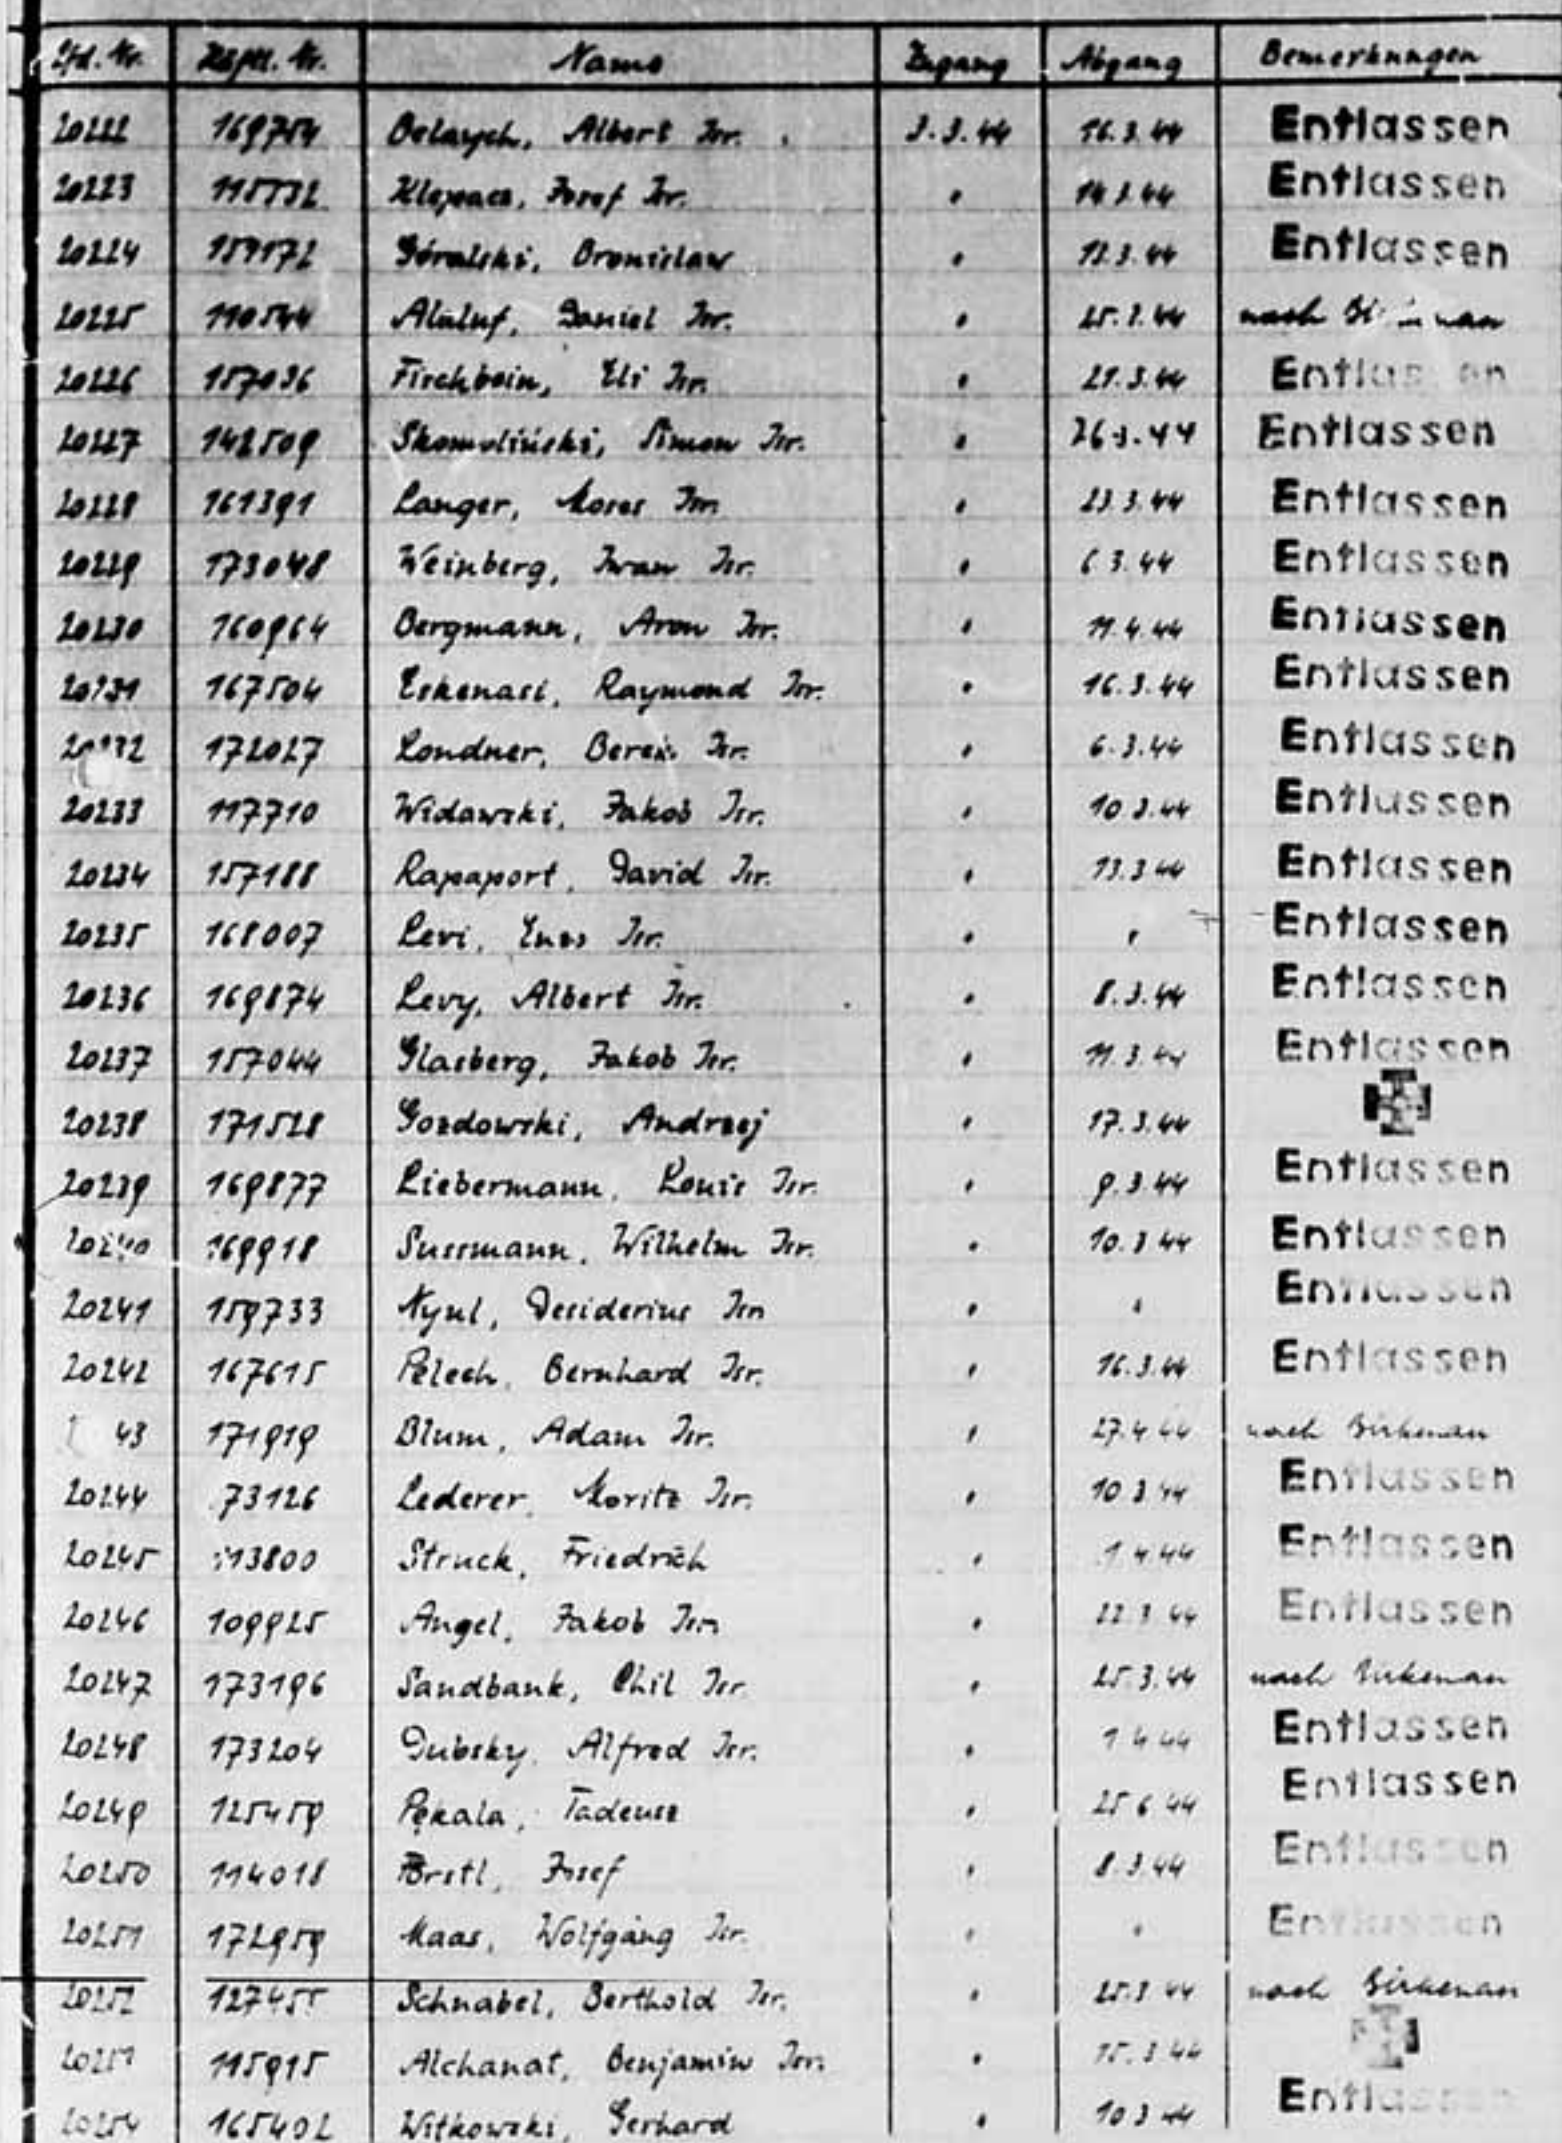 Lfd. Nr. Haftl. Nr. Name Zugang Abgang Bemerkungen
20222 169754 Albert Isr. 3.3.44 16.3.44 Entlassen
20223 Josef Isr. " 14.3.44 Entlassen
20224 Góralski, Bronislaw " 13.3.44 Entlassen
20225 110544 Alaluf, Daniel Isr. " nach
20226 157036 Fischbein, Eli Isr. " 21.3.44 Entlassen
20227 142509 Skomoliński, Simon Isr. " 26.3.44 Entlassen
20228 161391 Langer, Moses Isr. " 23.3.44 Entlassen
20229 173048 Weinberg, Iwan Isr. " 6.3.44 Entlassen
20230 160964 Bergmann, Aron Isr. " 11.4.44 Entlassen
20231 167504 Eskenasi, Raymond Isr. " 16.3.44 Entlassen
172027 Londner, Berek Isr. " 6.3.44 Entlassen
20233 117710 Widawski, Jakob Isr. " 10.3.44 Entlassen
20234 157188 Rapaport, David Isr. " 13.3.44 Entlassen
20235 168007 Levi, Isr. " " Entlassen
20236 169874 Levy, Albert Isr. " 8.3.44 Entlassen
20237 157044 Glasberg, Jakob Isr. " 11.3.44 Entlassen
20238 171528 Gozdowski, Andrzej " 17.3.44
20239 169877 Liebermann, Louis Isr. " 9.3.44 Entlassen
20240 169918 Sussmann, Wilhelm Isr. " 10.3.44 Entlassen
20241 159733 Nyul, Desiderius Isr. " " Entlassen
20242 167615 Pelech, Bernhard Isr. " 16.3.44 Entlassen
43 171919 Blum, Adam Isr. " 27.4.44 nach Birkenau
20244 73126 Lederer, Moritz Isr. " 10.3.44 Entlassen
20245 113800 Struck, Friedrich " 1.4.44 Entlassen
20246 109925 Angel, Jakob Isr. " 22.3.44 Entlassen
20247 173196 Sandbank, Chil Isr. " 25.3.44 nach Birkenau
20248 173204 Dubsky, Alfred Isr. " 1.4.44 Entlassen
20249 125459 Pękala, Tadeusz " Entlassen
20250 114018 Josef " 8.3.44 Entlassen
20251 172959 Maas, Wolfgang Isr. " " Entlassen
20252 127455 Schnabel, Berthold Isr. " 25.3.44 nach Birkenau
115915 Alchanat, Benjamin Isr. " 15.3.44
20254 165402 Witkowski, Gerhard " 10.3.44 Entlassen